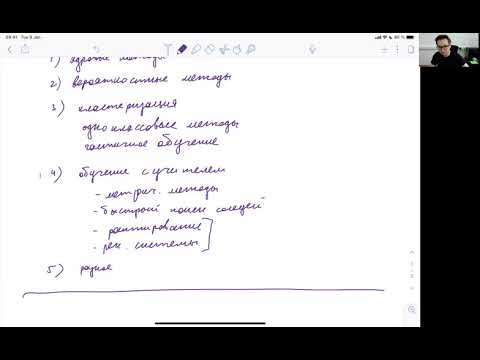 09:41 Tue 9 Jan
1) ядровые методы
2) вероятностные методы
3) кластеризация
одноклассовые методы
частичное обучение
4) обучение с учителем
- метрич. методы
- быстрый поиск соседей
- ранжирование
- рек. системы
5) разное